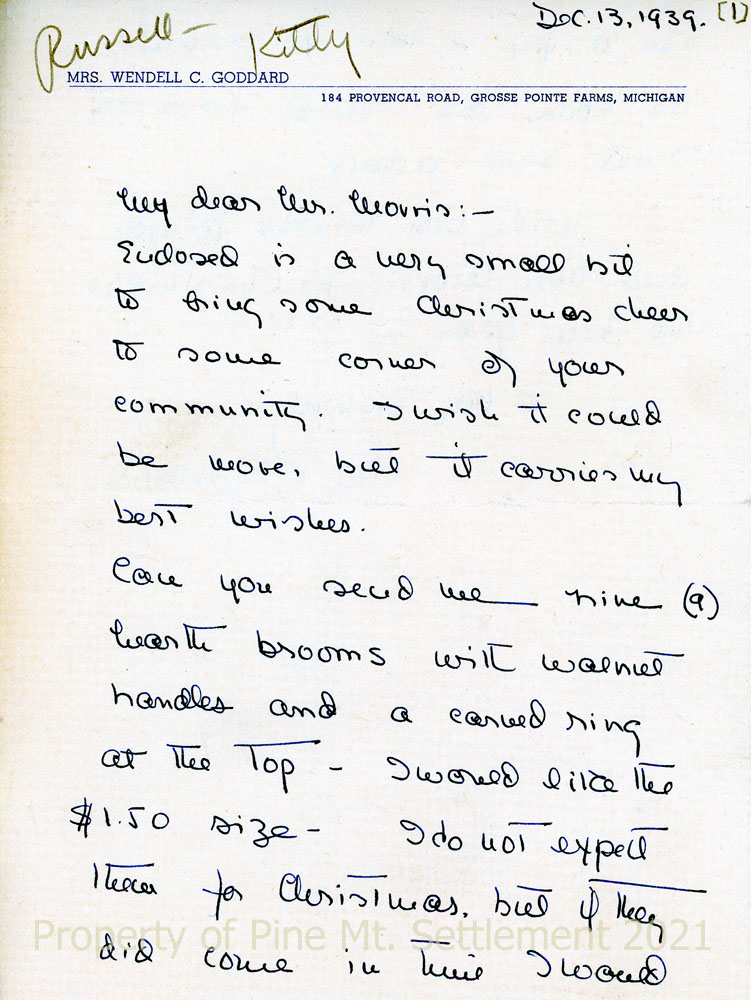 Dec. 13, 1939. [1]
Russell – Kitty
MRS. WENDELL C. GODDARD
184 PROVENCAL ROAD, GROSSE POINTE FARMS, MICHIGAN
My dear Mr. Morris:–
Enclosed is a very small bit
to bring some Christmas cheer
to some corner of your
community. I wish it could
be more, but it carries my
best wishes.
Can you send me nine (9)
hearth brooms with walnut
handles and a carved ring
at the top – I would like the
$1.50 size – I do not expect
them for Christmas, but if they
did come in time I would
Property of Pine Mt. Settlement 2021